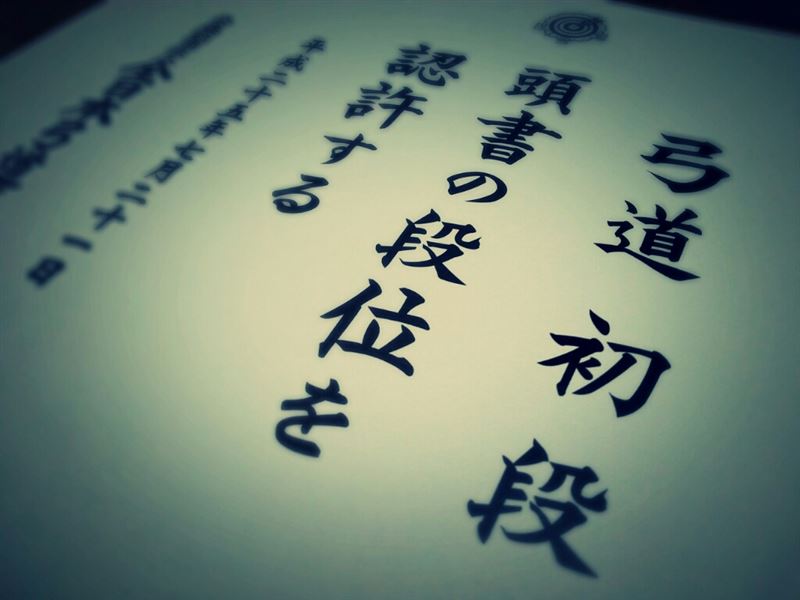 弓道初段
頭書の段位を
認許する
平成二十五年七月二十一日